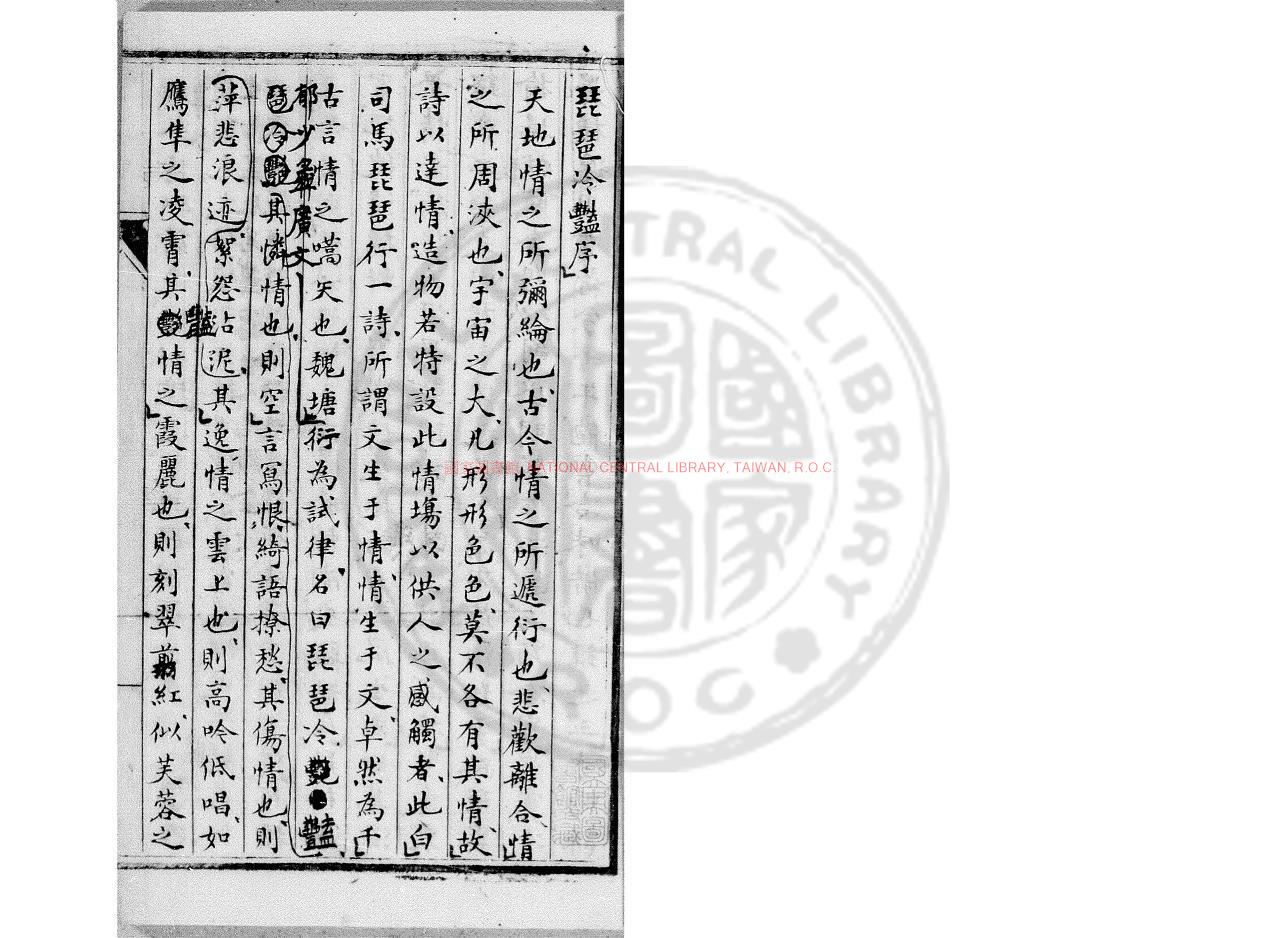 琵琶冷豔序
天地情之所彌綸也古今情之所遞衍也悲歡離合情
之所周浹也宇宙之大凡形形色色莫不各有其情故
詩以達情造物若特設此情塲以供人之感觸者此白
司馬琵琶行一詩所謂文生于情情生于文卓然為千
古言情之嚆矢也魏塘衍為試律名曰琵琶冷豔
郁少彝廣文
琶冷豔其憐情也則空言寫恨綺語撩愁其傷情也則
萍悲浪迹絮怨沾泥其逸情之雲上也則高吟低唱如
鷹隼之凌霄其豔情之霞麗也則刻翠剪紅似芙蓉之
國家圖書館, NATIONAL CENTRAL LIBRARY, TAIWAN, R.O.C.